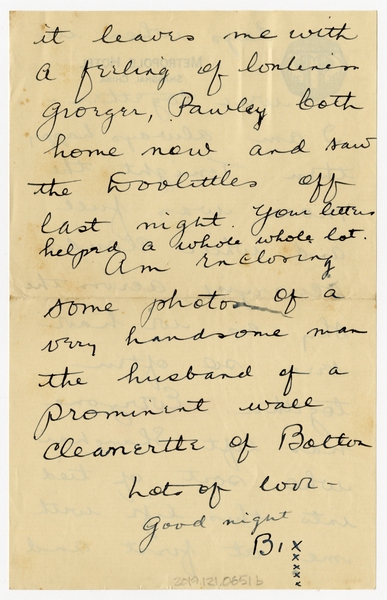 it leaves me with
a feeling of lonliness
Groeger, Pawley both
home now and saw
the Doolittles off
last night. Your letters
helped a whole whole lot.
Am enclosing
some photos of a
very handsome man
the husband of a
prominent wall
cleanertte of Bolton
Lots of love -
Good night
Bix
xxxxx
2019.121.0651b